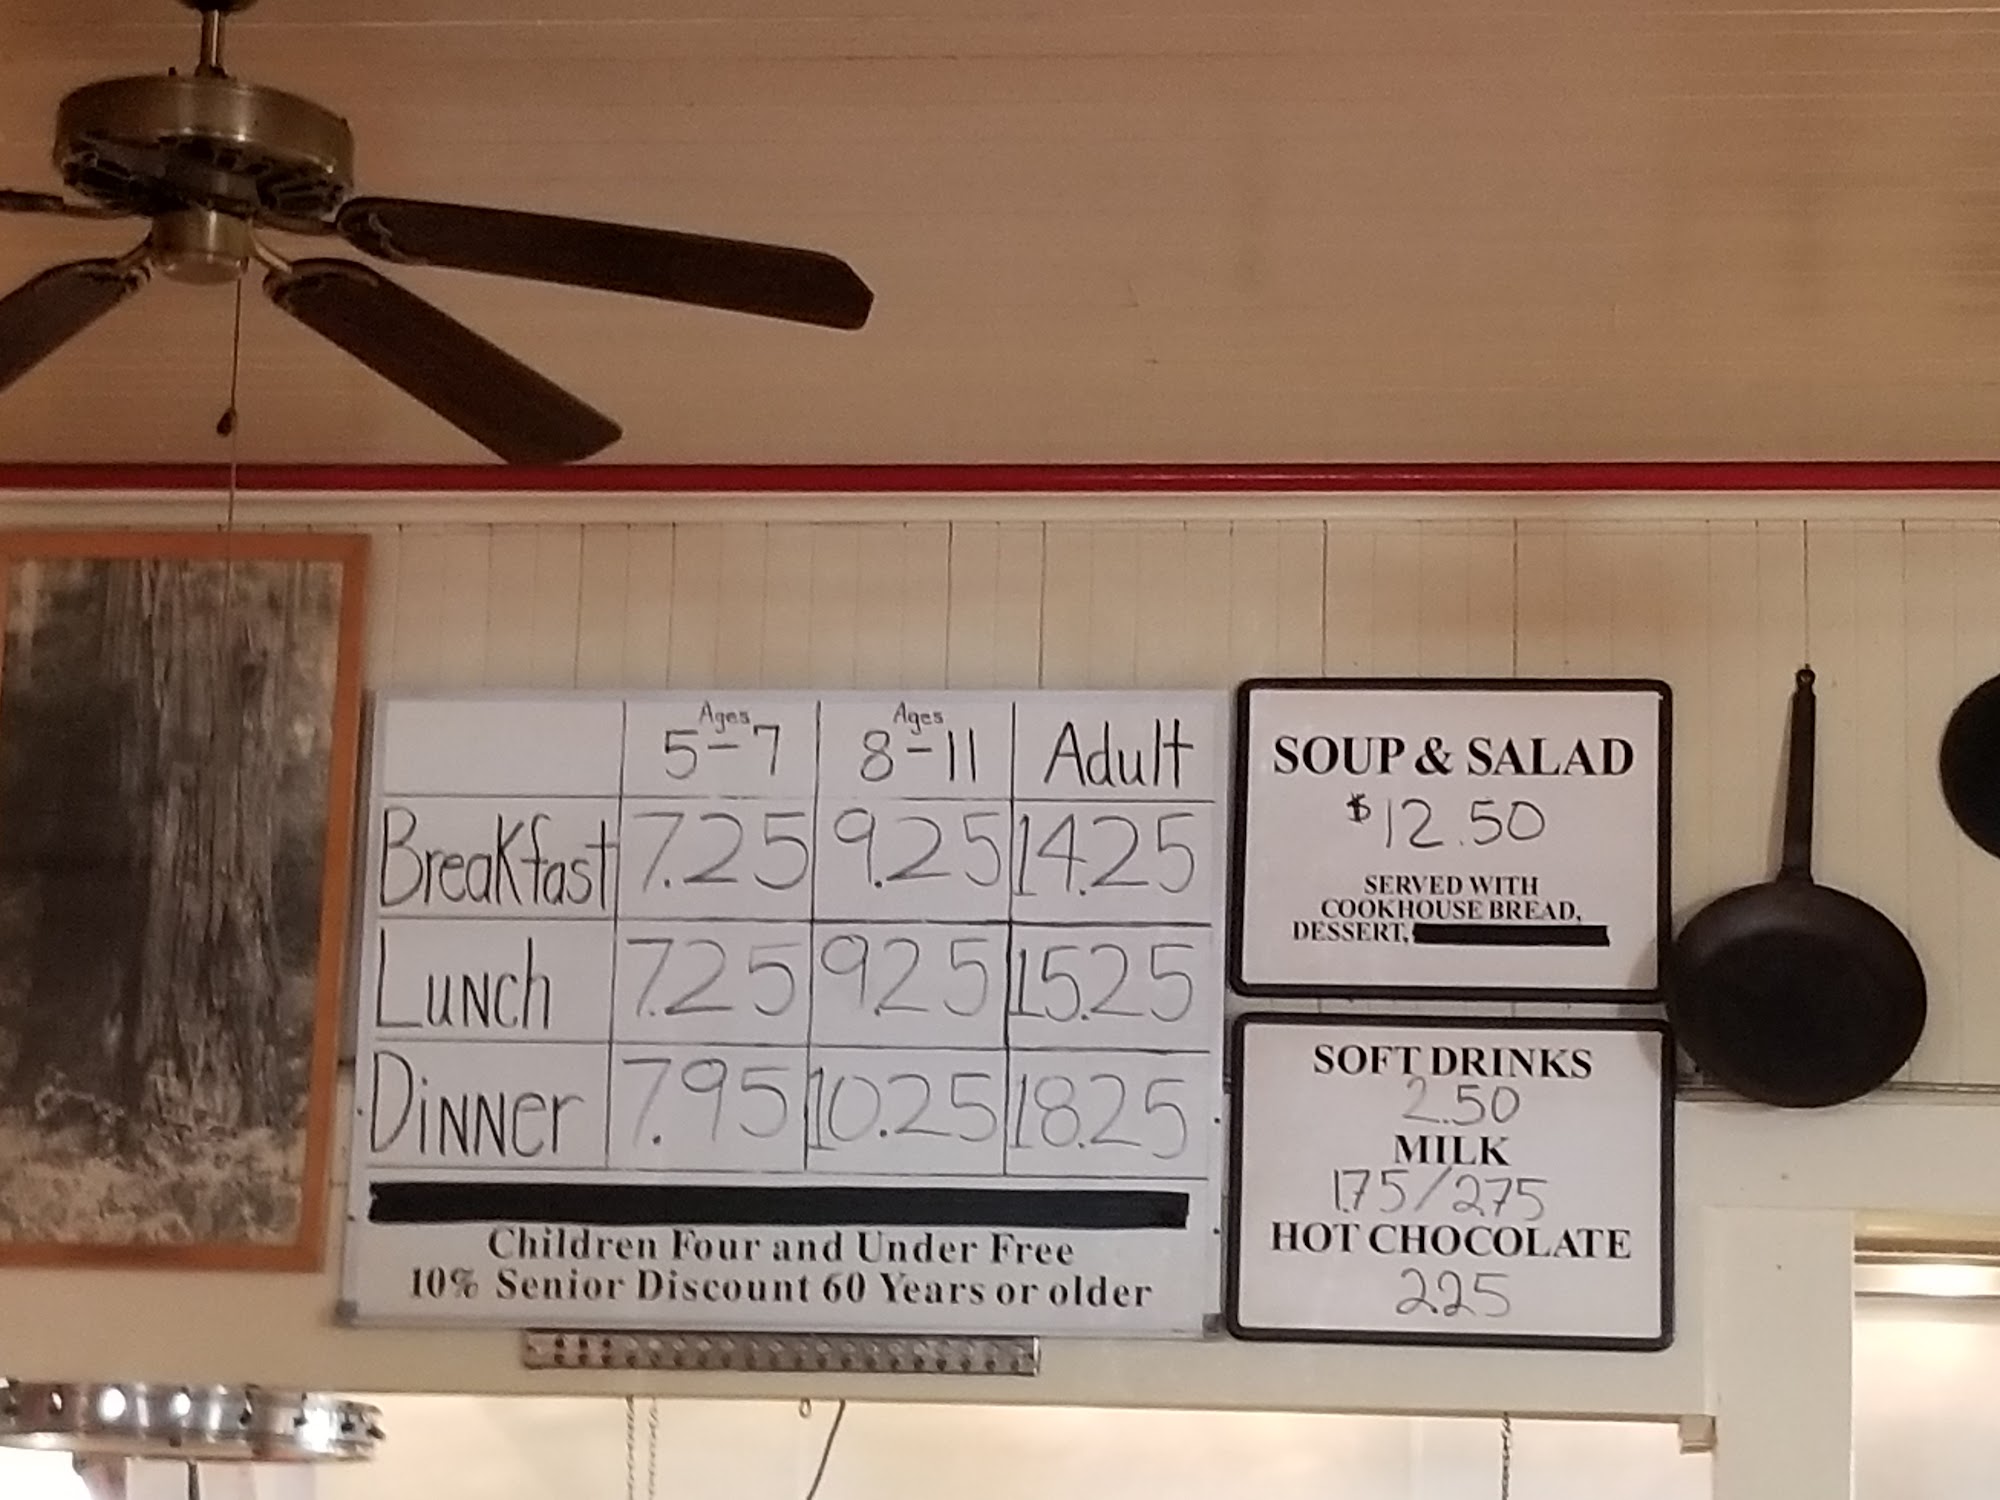 Ages 5-7 Ages 8-11 Adult
Breakfast 7.25 9.25 14.25
Lunch 7.25 9.25 15.25
Dinner 7.95 10.25 18.25
Children Four and Under Free
10% Senior Discount 60 Years or older
SOUP & SALAD
$12.50
SERVED WITH
COOKHOUSE BREAD,
DESSERT,
SOFT DRINKS
2.50
MILK
1.75/2.75
HOT CHOCOLATE
2.25